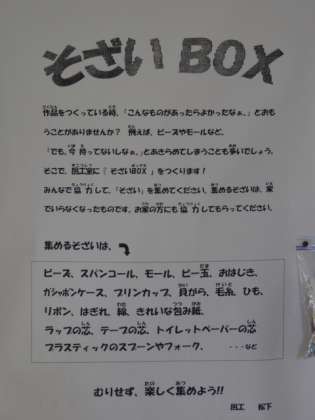 そざいBOX
作品をつくっている時、「こんなものがあったらよかったなぁ。」とおも
うことがありませんか？ 例えば、ビーズやモールなど、
「でも、今持ってないしなぁ。」とあきらめてしまうことも多いでしょう。
そこで、図工室に『そざいBOX』をつくります！
みんなで協力して、「そざい」を集めてください。集めるそざいは、家
でいらなくなったものです。お家の方にも協力してもらってください。
集めるそざいは、
ビーズ、スパンコール、モール、ビー玉、おはじき、
ガシャポンケース、プリンカップ、貝がら、毛糸、ひも、
リボン、はぎれ、綿、きれいな包み紙、
ラップの芯、テープの芯、トイレットペーパーの芯
プラスティックのスプーンやフォーク、 ・・・など
むりせず、楽しく集めよう!!
図工 松下